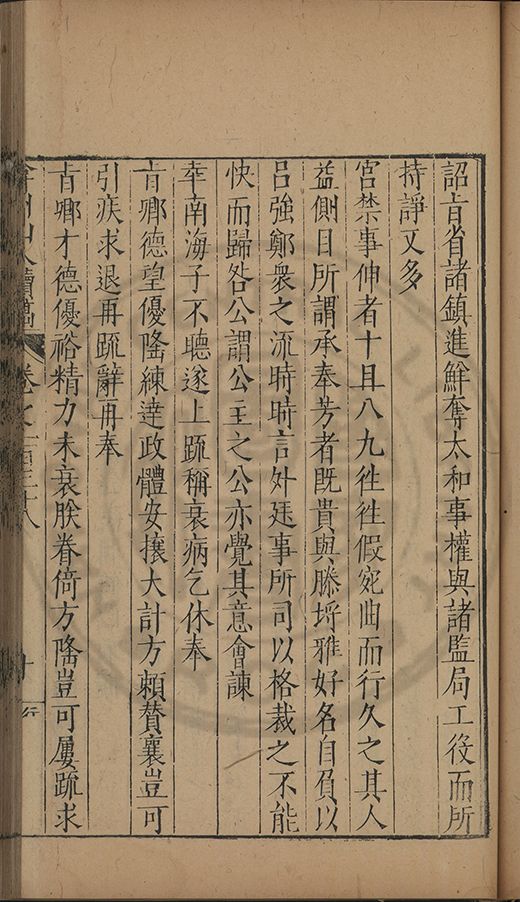 詔旨省諸鎮進鮮奪太和事權與諸監局工役而所
持諍又多
宮禁事伸者十且八九徃徃假宛曲而行久之其人
益側目所謂承奉芳者既貴與滕埒雅好名自負以
呂強鄭衆之流時時言外廷事所司以格裁之不能
快而歸咎公謂公主之公亦覺其意會諫
幸南海子不聽遂上疏稱衰病乞休奉
旨卿德望優隆練達政體安攘大計方賴賛襄豈可
引疾求退再疏辭再奉
旨卿才德優裕精力未衰朕眷倚方隆豈可屢疏求
弇州山人續稿 卷之一百三十八